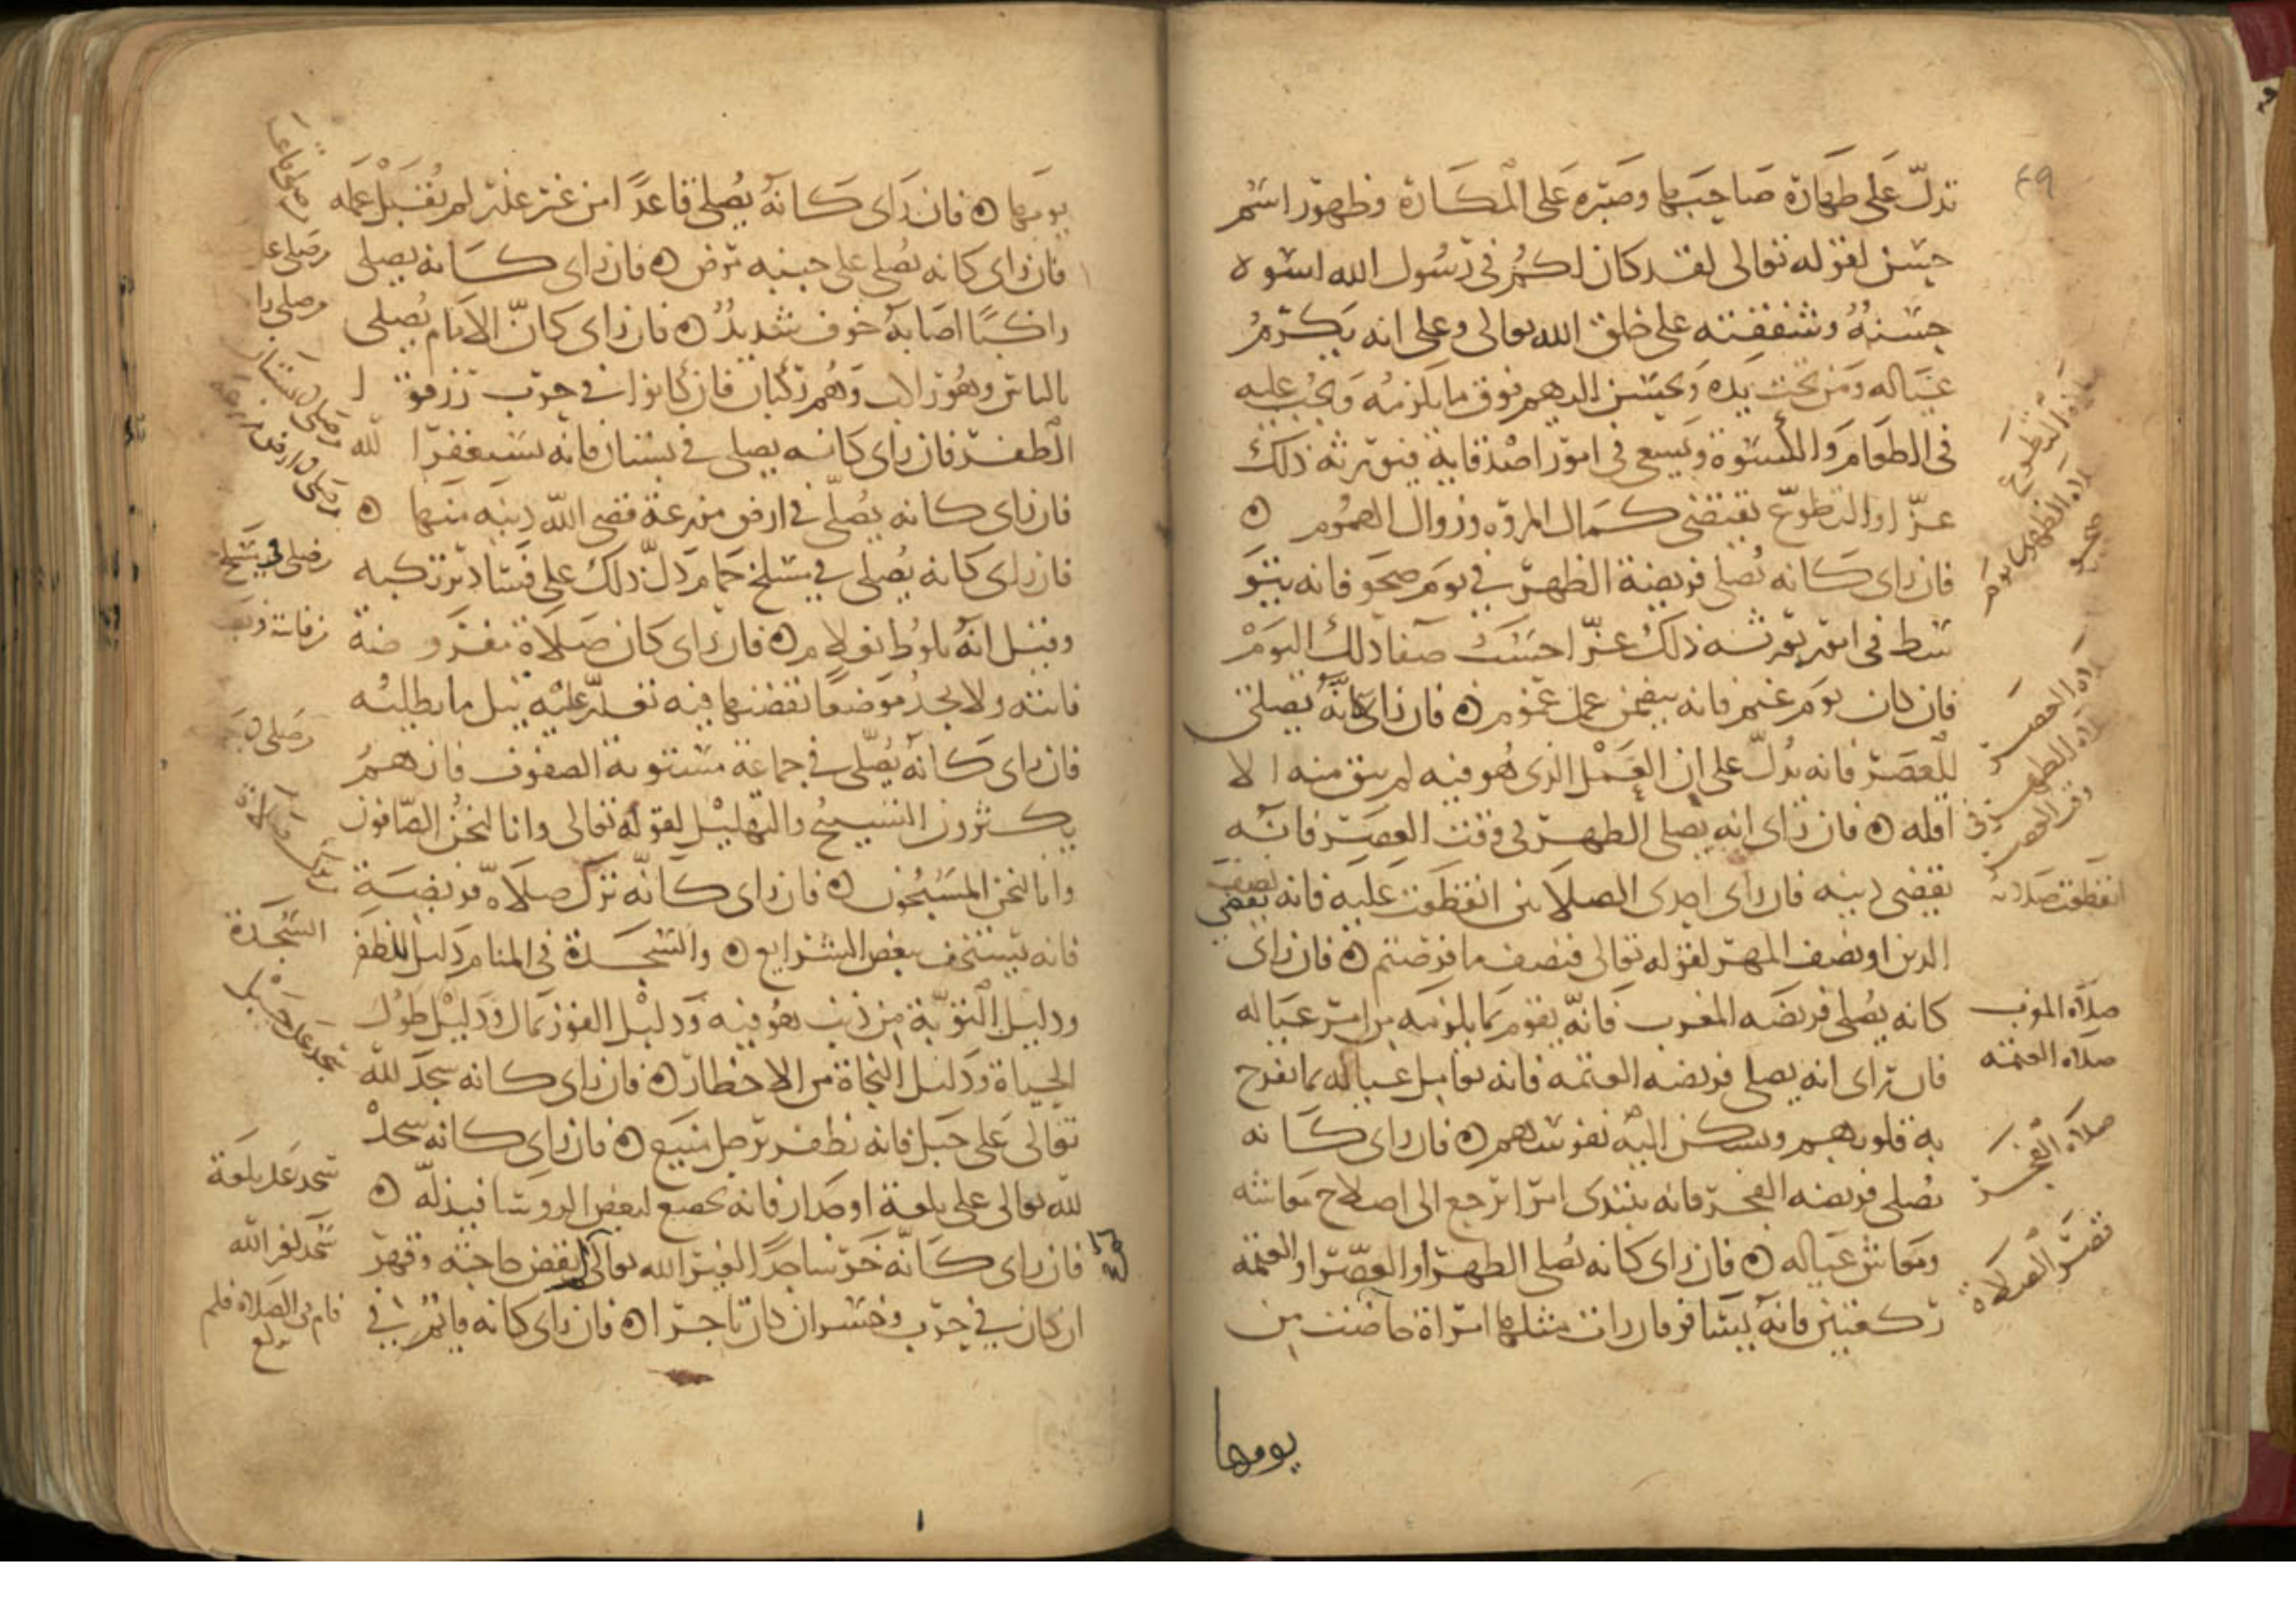 ٤٩
تدل على طهارة صاحبها وصبره على المكارة وظهور اسم
حسن لقوله تعالى لقد كان لكم في رسول الله اسوة
حسنة وشفقته على خلق الله تعالى وعلى انه يكرم
عياله ومن تحت يده ويحسن اليهم فوق ما يلزمه ويجب عليه
في الطعام والكسوة ويسعى في امور اصدقايه فيورثه ذلك
عزا والتطوع يقتضي كمال المروه وزوال الهموم
فان راى كانه يصلي فريضة الظهر في يوم صحو فانه يتو
سط في امر يورثه ذلك عزا حسب صفا ذلك اليوم
فان كان يوم غيم فانه يتضمن عمل غموم فان راى كانه يصلي
للعصر فانه يدل على ان العمل الذي هو فيه لم يبق منه الا
اقله فان راى انه يصلي الظهر في وقت العصر فانه
يقضي دينه فان راى احدى الصلاتين انقطعت عليه فانه يقضي نصف
الدين او نصف المهر لقوله تعالى فنصف ما فرضتم فان راى
كانه يصلي فريضه المغرب فانه يقوم بما يلزمه من امر عياله
فان راى انه يصلي فريضه العتمه فانه يعامل عياله بما تفرح
به قلوبهم وتسكن اليه نفوسهم فان راى كانه
يصلي فريضه الفجر فانه يبتدى امرا يرجع الى اصلاح معاشه
ومعاش عياله فان راى كانه يصلي الظهر او العصر او العتمه
ركعتين فانه يسافر فان رات مثلها امراة حاضت من
يومها
صلاه التطوع
صلاه الظهر في يوم
صحو
صلاه العصر
صلاه الظهر في
وقت العصر
انقطعت صلاته
صلاه المغرب
صلاه العتمه
صلاه الفجر
قصر الصلاة
يومها فان راى كانه يصلي قاعدا من غير علة لم يقبل عمله
فان راى كانه يصلي على جنبه مرض فان راى كانه يصلي
راكبا اصابه خوف شديد فان راى كان الامام يصلي
بالناس وهو راكب وهم ركبان فان كانوا في حرب رزقوا
الظفر فان راى كانه يصلي في بستان فانه يستغفر الله
فان راى كانه يصلي في ارض مزرعة قضى الله دينه منها
فان راى كانه يصلي في مسلخ حمام دل ذلك على فساد يرتكبه
وقيل انه يلوط بغلام فان راى كان صلاة مفروضة
فاتته ولا يجد موضعا يقضيها فيه تعذر عليه نيل ما يطلبه
فان راى كانه يصلي في جماعة مستوية الصفوف فانهم
يكثرون التسبيح والتهليل لقوله تعالى وانا لنحن الصافون
وانا لنحن المسبحون فان راى كانه ترك صلاه فريضة
فانه يستخف ببعض الشرايع والسجدة في المنام دليل الظفر
ودليل التوبة من ذنب هو فيه ودليل الفوز بمال ودليل طول
الحياة ودليل النجاة من الاخطار فان راى كانه سجد لله
تعالى على جبل فانه يظفر برجل منيع فان راى كانه سجد
لله تعالى على فانه يخضع لبعض الروسا فيذله
فان راى كانه خر ساجدا لغير الله تعالى لم تقض حاجته وقهر
ان كان في حرب وخسر ان كان تاجرا فان راى كانه قايم في
وصلى في مسلخ
السجدة
سجد على جبل
سجد لغير الله
قام في الصلاه فلم
يركع